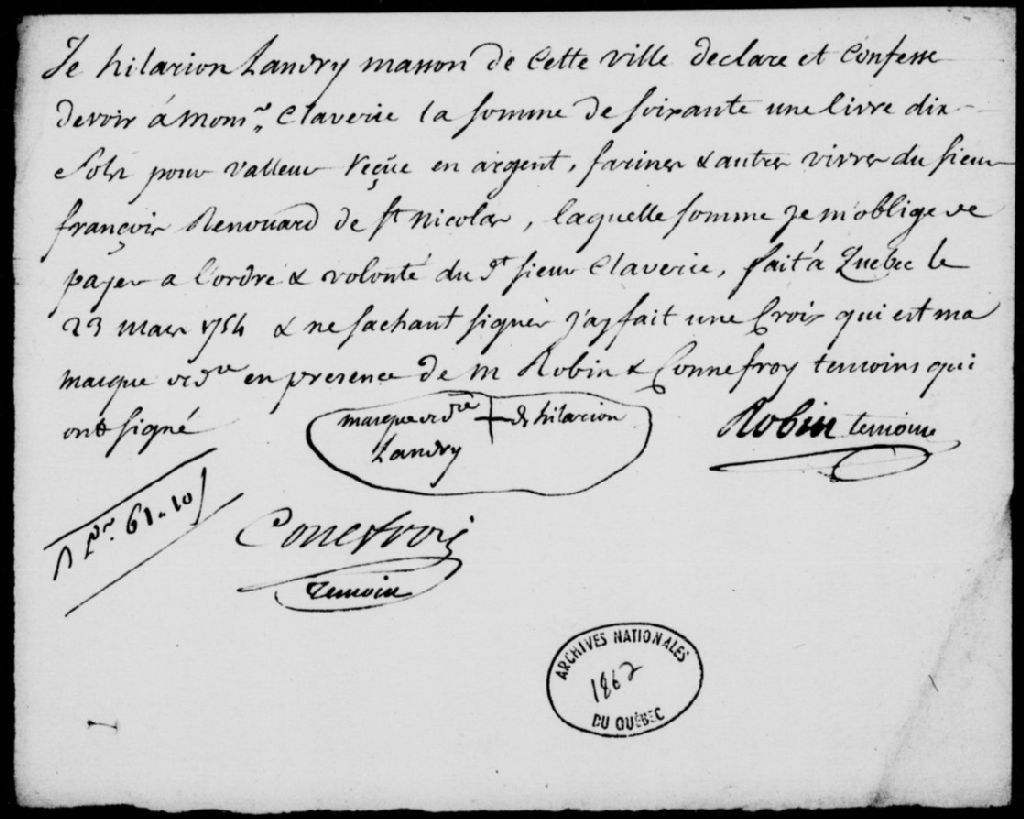 Je hilarion Landry masson de Cette ville declare et Confesse
devoir á Monsr. Claverie la somme de soixante une livre dix
Sols pour valleur reçüe en argent, farines & autres vivres du sieur
françois Renouard de St Nicolas, laquelle somme je m'oblige de
payer a l'ordre & volonté du dt sieur Claverie, fait á Quebec le
23 Mars 1754 & ne sachant signer j'ay fait une Croix qui est ma
marque ordre en presence de m Robin & Connefroy temoins qui
ont signé
marque ordre + de hilarion
Landry
Robin temoins
Pr. 61.10
Conefrois
temoin
ARCHIVES NATIONALES
1862
DU QUÉBEC